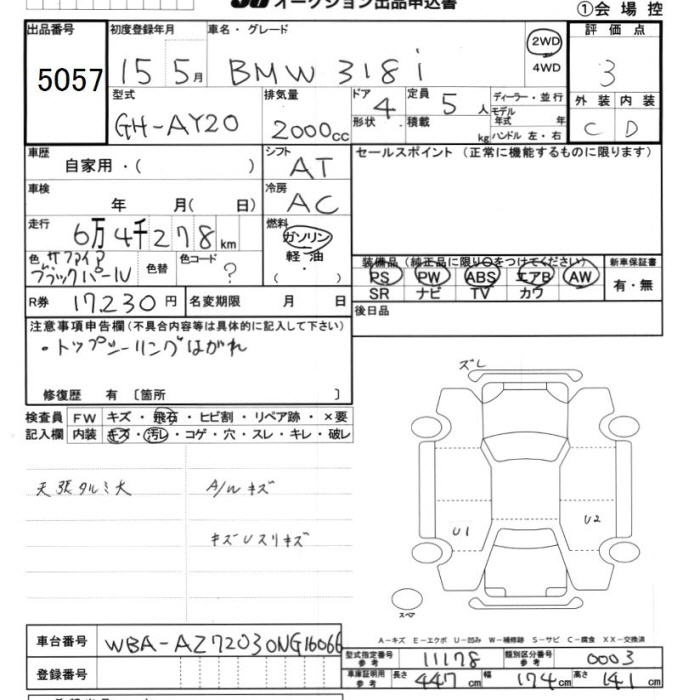 オークション出品申込書
①会場控
出品番号 初度登録年月 車名・グレード 評価点
5057 15 5月 BMW 318i 2WD 4WD 3
型式 排気量 ドア 定員 ディーラー・並行 外装 内装
GH-AY20 2000cc 4 5人 モデル年式 年 C D
形状 積載 kg ハンドル 左・右
車歴 シフト セールスポイント(正常に機能するものに限ります)
自家用・( ) AT
車検 冷房
年 月( 日) AC
走行 燃料
6万4千278km ガソリン
軽・油
( ・ )
色 サファイア ブラックパール 色替 色コード ?
装備品(純正品に限り○をつけてください) 新車保証書
PS PW ABS エアB AW 有・無
SR ナビ TV カワ
R券 17,230円 名変期限 月 日 後日品
注意事項申告欄(不具合内容等は具体的に記入して下さい)
・トップシーリングはがれ
修復歴 有 〔箇所 〕
検査員 FW キズ・飛石・ヒビ割・リペア跡・×要
記入欄 内装 キズ・汚レ・コゲ・穴・スレ・キレ・破レ
天張タルミ大 A/Wキズ
キズUスリキズ
ズレ
U1 U2
スペア
A-キズ E-エクボ U-凹み W-補修跡 S-サビ C-腐食 XX-交換済
車台番号 WBA-AZ72030NG16066
型式指定番号 参考 11178 類別区分番号 参考 0003
登録番号
車庫証明用 参考 長さ 447cm 幅 174cm 高さ 141cm